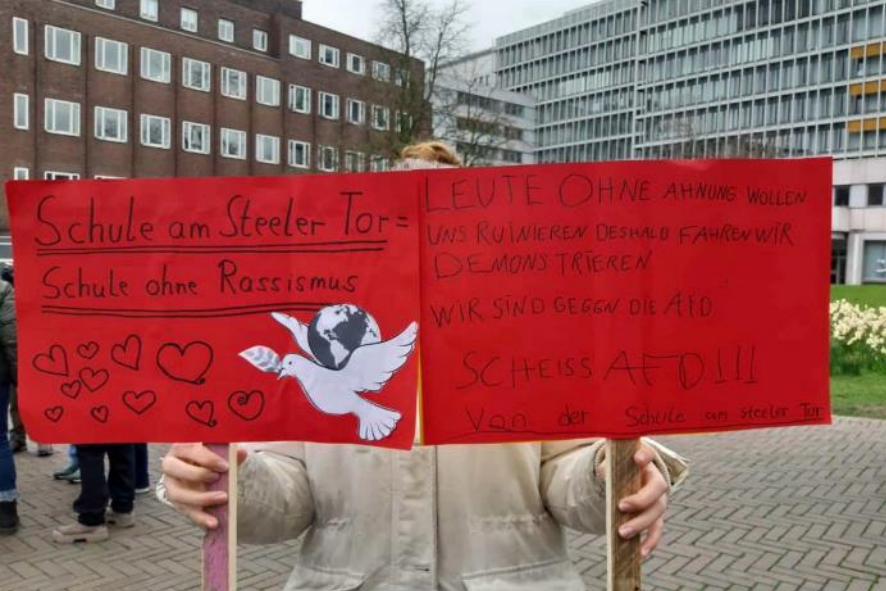 Schule am Steeler Tor =
Schule ohne Rassismus
LEUTE OHNE AHNUNG WOLLEN
UNS RUINIEREN DESHALB FAHREN WIR
DEMONSTRIEREN
WIR SIND GEGEN DIE AFD
SCHEISS AFD!!!
Von der Schule am steeler Tor